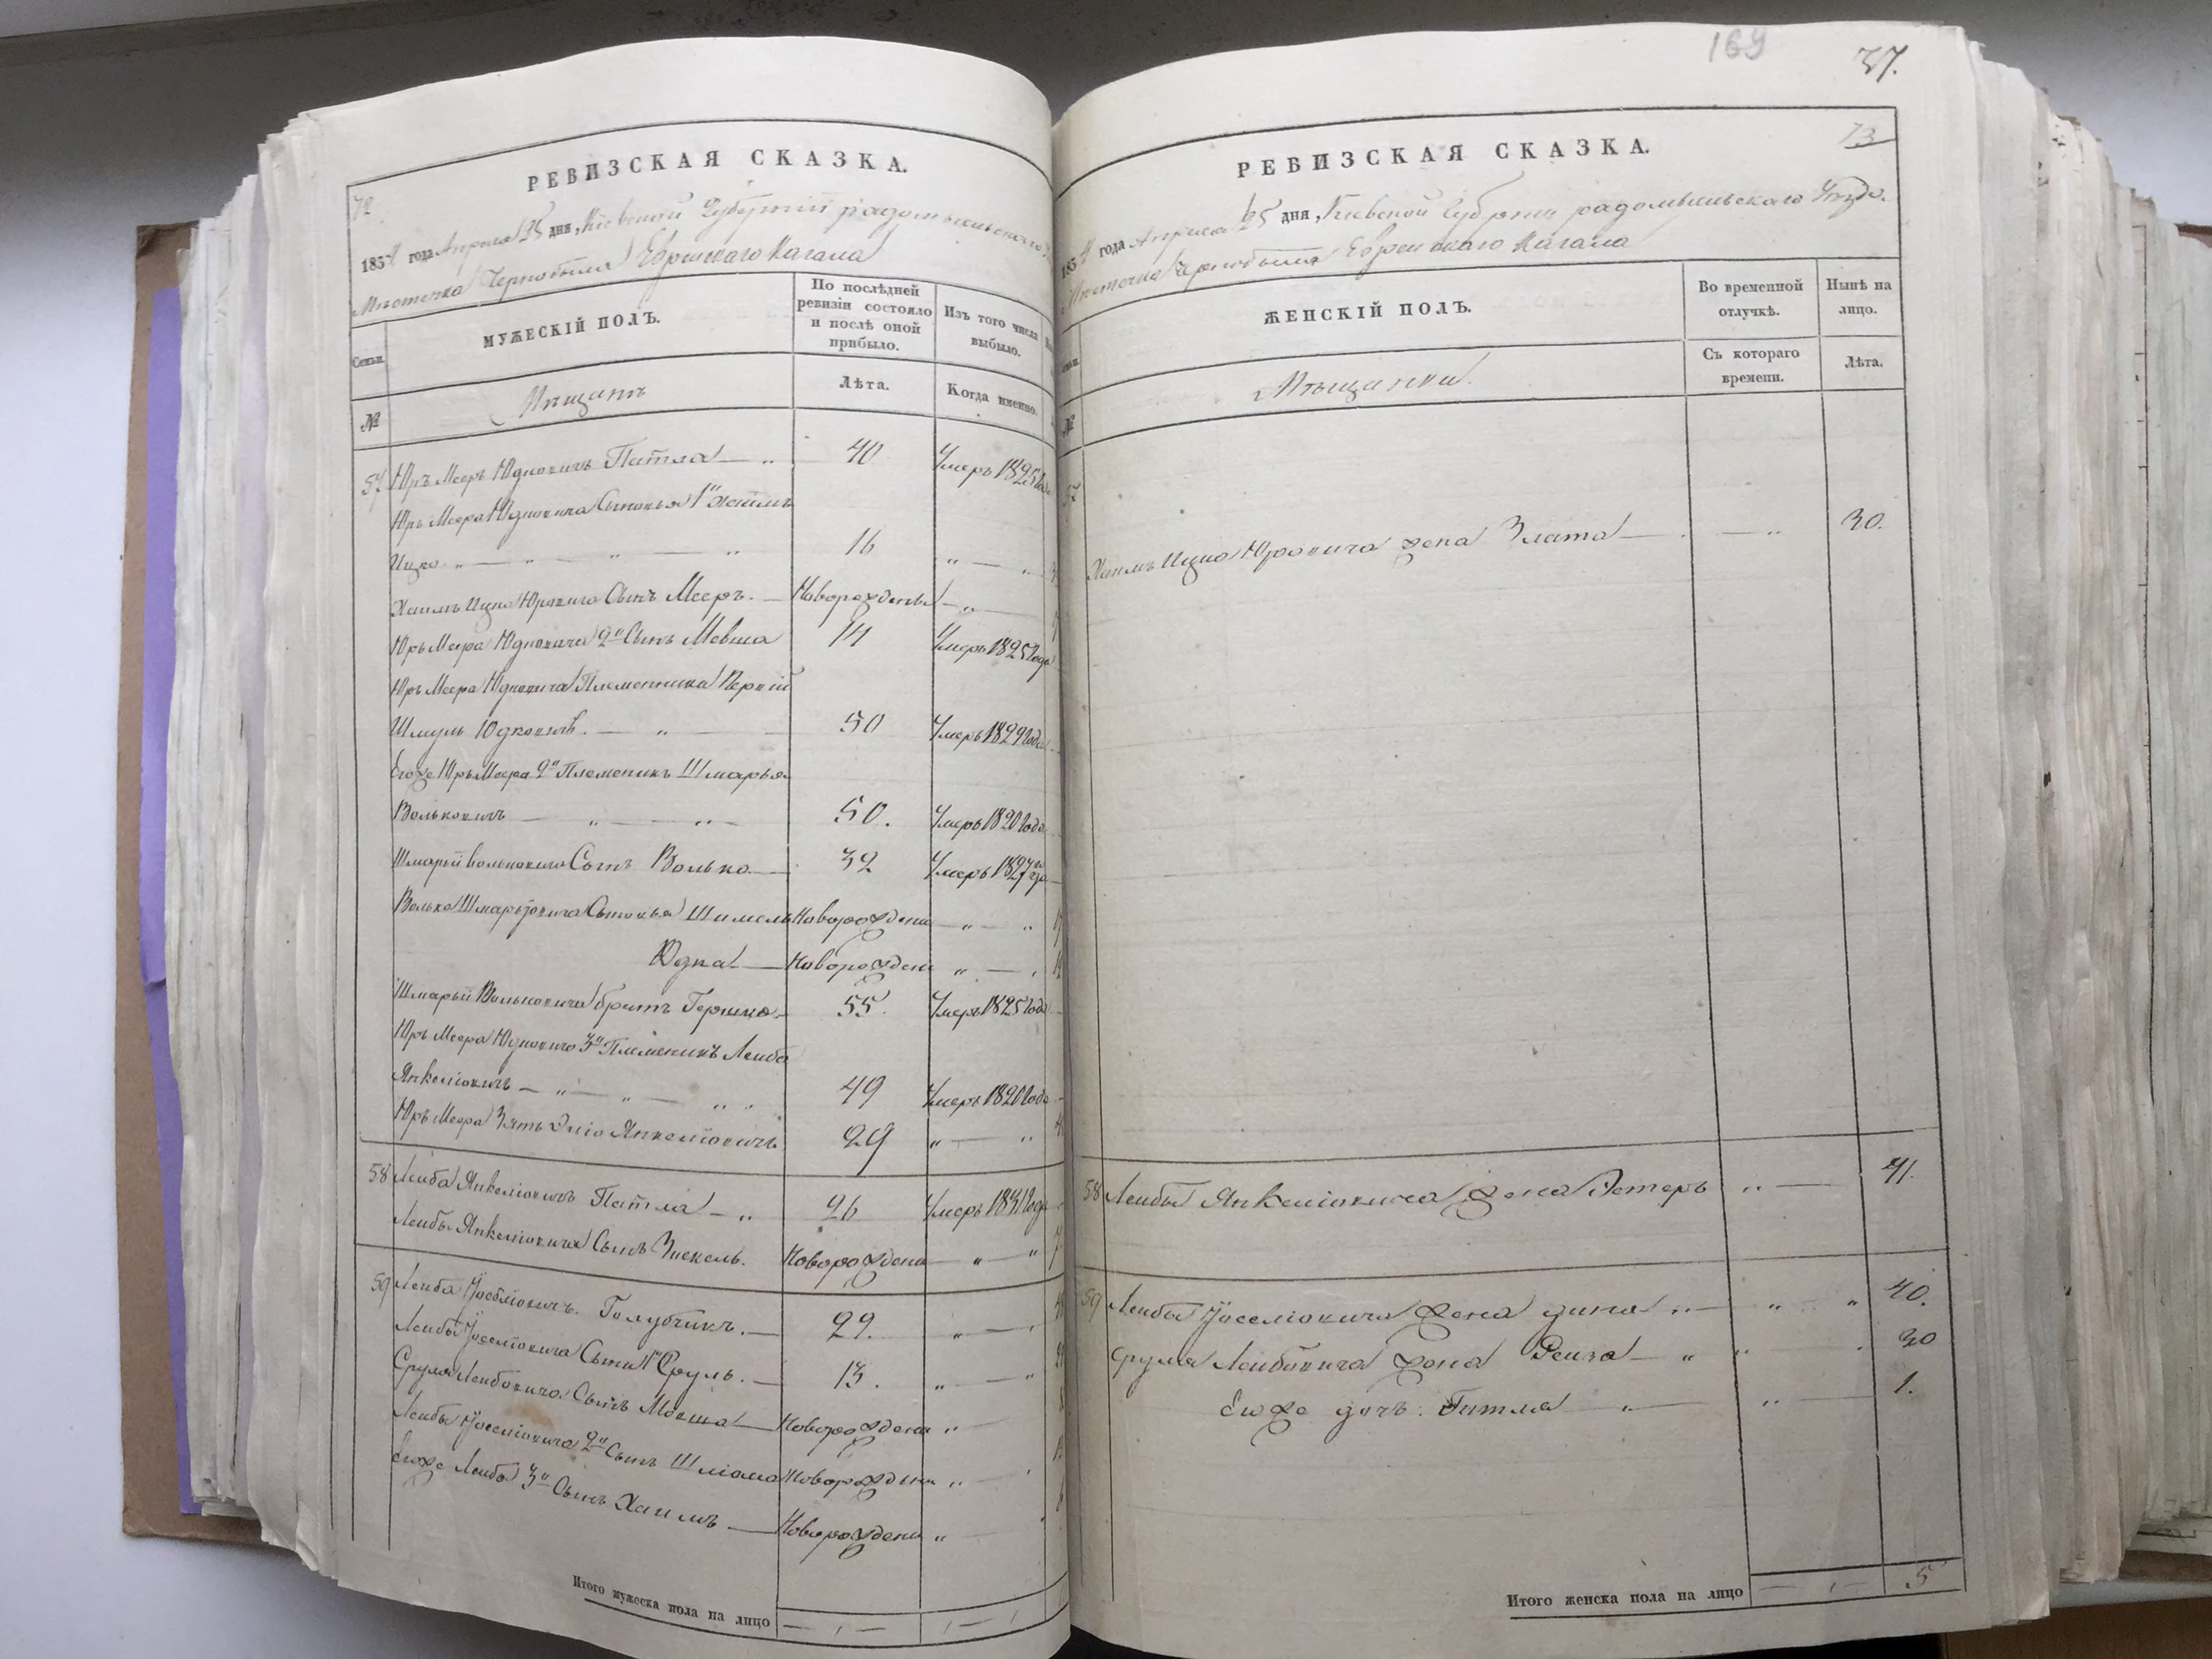 РЕВИЗСКАЯ СКАЗКА.
72
1834 года Апреля 25 дня, Кіевской Губерніи радомысльскаго
Мѣстечка Чернобыля Еврейскаго Кагала
Семьи.
МУЖЕСКІЙ ПОЛЪ.
По послѣдней ревизіи состояло и послѣ оной прибыло.
Изъ того числа выбыло.
№
Мѣщанъ
Лѣта.
Когда именно.
57 Юръ Мееръ Юдковичъ Патла — „ 40 Умеръ 1825 года
Юръ Меера Юдковича Сыновья 1й Хаимъ
Ицко „ — „ — „ — „ 16 „ — „
Хаимъ Ицка Юровича Сынъ Мееръ. — Новорожденъ — „
Юръ Меера Юдковича 2й Сынъ Мевша 14 Умеръ 1825 года
Юръ Меера Юдковича Племенника Первій
Шмуль Юдковичъ. — „ — 50 Умеръ 1829 года
Егоже Юръ Меера 2й Племеникъ Шмарья
Волковичъ — „ — „ — 50. Умеръ 1820 года
Шмарьи Волковича Сынъ Волько — 32 Умеръ 1827 го года
Волька Шмарьовича Сыновья Шимель Новорожденъ — „ — „
Юдка — Новорожденъ „ — „
Шмарьи Волковича братъ Гершко — 55. Умеръ 1825 года
Юръ Меера Юдковича 3й Племеникъ Лейба
Янкеліовичъ — „ — „ — „ 49 Умеръ 1820 года
Юръ Меера Зять Янкеліовичъ 29 „ — „
58 Лейба Янкеліовичъ Патла — „ 26 Умеръ 1831 года
Лейбы Янкеліовича Сынъ Зискель. Новорожденъ — „ — „
59 Лейба Іоселіовичъ Голубчикъ. — 29. „ — „
Лейбы Іоселіовича Сынъ 1й Сруль. — 13. „ — „
Сруля Лейбовича Сынъ Мовша — Новорожденъ „
Лейбы Іоселіовича 2й Сынъ Шліома Новорожденъ „ —
Егоже Лейбы 3й Сынъ Хаимъ — Новорожденъ „ —
Итого мужеска пола на лицо
169
37.
73
РЕВИЗСКАЯ СКАЗКА.
1834 года Апреля 25 дня, Кіевской Губерніи радомысльскаго Уезда.
Мѣстечка Чернобыля Еврейскаго Кагала
ЖЕНСКІЙ ПОЛЪ.
Во временной отлучкѣ.
Нынѣ на лицо.
№
Мѣщанки.
Съ котораго времени.
Лѣта.
57
Хаимъ Ицка Юровича жена Злата — — „ 30.
58 Лейбы Янкеліовича жена Эстеръ „ — 41.
59 Лейбы Іоселіовича жена дина „ — „ „ 40.
Сруля Лейбовича жена Рейза — „ „ 30
Егоже дочь Гитля — „ — „ — 1.
Итого женска пола на лицо — „ — 5